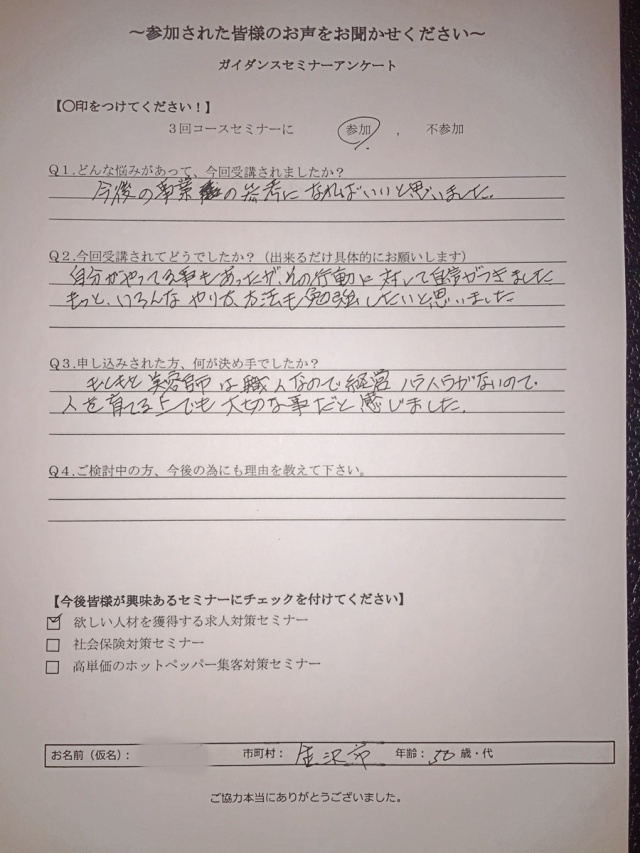 ～参加された皆様のお声をお聞かせください～
ガイダンスセミナーアンケート
【〇印をつけてください！】
３回コースセミナーに 参加 ． 不参加
Q１.どんな悩みがあって、今回受講されましたか？
今後の事業の参考になればいいと思いました。
Q２.今回受講されてどうでしたか？（出来るだけ具体的にお願いします）
自分がやってる事もあったが、その行動に対して自信がつきました
もっと、いろんなやり方、方法も勉強したいと思いました
Q３.申し込みされた方、何が決め手でしたか？
もともと美容師は職人なので経営がないので、
人を育てる上でも大切な事だと感じました。
Q４.ご検討中の方、今後の為にも理由を教えて下さい。
【今後皆様が興味あるセミナーにチェックを付けてください】
欲しい人材を獲得する求人対策セミナー
社会保険対策セミナー
高単価のホットペッパー集客対策セミナー
お名前（仮名）： 市町村： 金沢市 年齢： 50 歳・代
ご協力本当にありがとうございました。